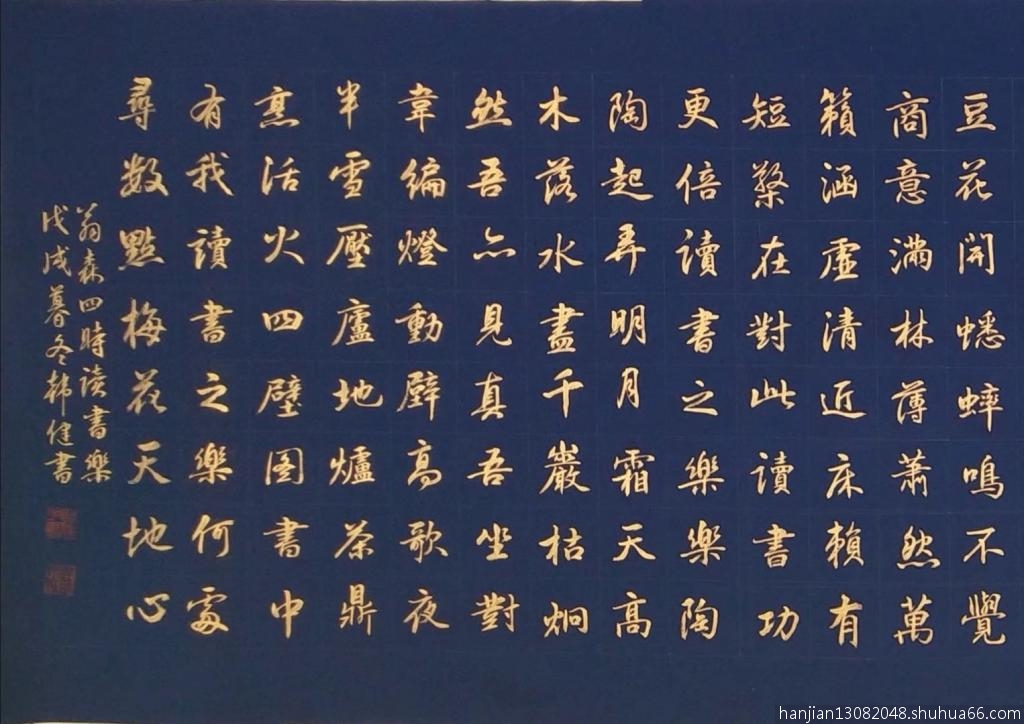 豆花開蟋蟀鳴不覺
商意滿林薄蕭然萬
籟涵虛清近床賴有
短檠在對此讀書功
更倍讀書之樂樂陶
陶起弄明月霜天高
木落水盡千巖枯炯
然吾亦見真吾坐對
韋編燈動壁高歌夜
半雪壓廬地爐茶鼎
烹活火四壁图書中
有我讀書之樂何處
尋數點梅花天地心
翁森四時读書樂
戊戌暮冬韩健書
hanjian13082048.shuhua66.com